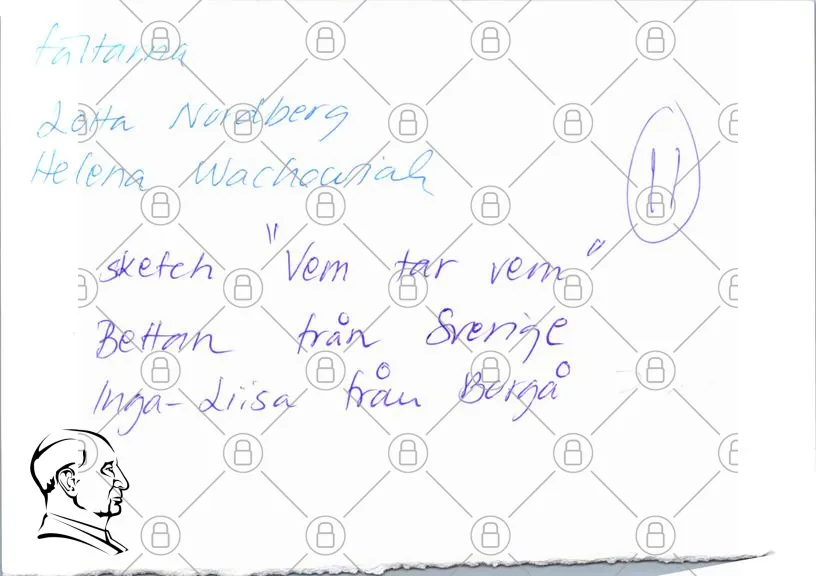 fältarna
Lotta Nordberg
Helena Wachowiak
11
sketch "Vem tar vem"
Bettan från Sverige
Inga-Liisa från Borgå